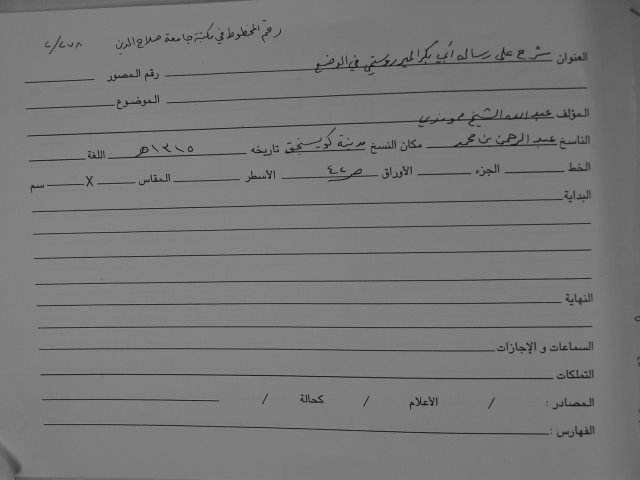 رقم المخطوط في مكتبة جامعة صلاح الدين ٢/٢٧٨
العنوان شرح على رسالة أبي بكر المير روستي في الوضع
رقم المصور
الموضوع
المؤلف عبد الله الشيخ
الناسخ عبد الرحمن بن محمد مكان النسخ مدينة كويسنجق تاريخه ١٣١٥هـ اللغة
الخط الجزء الأوراق ٤٢ ص الأسطر المقاس X سم
البداية
النهاية
السماعات و الإجازات
التملكات
المصادر : / الأعلام / كحالة /
الفهارس :